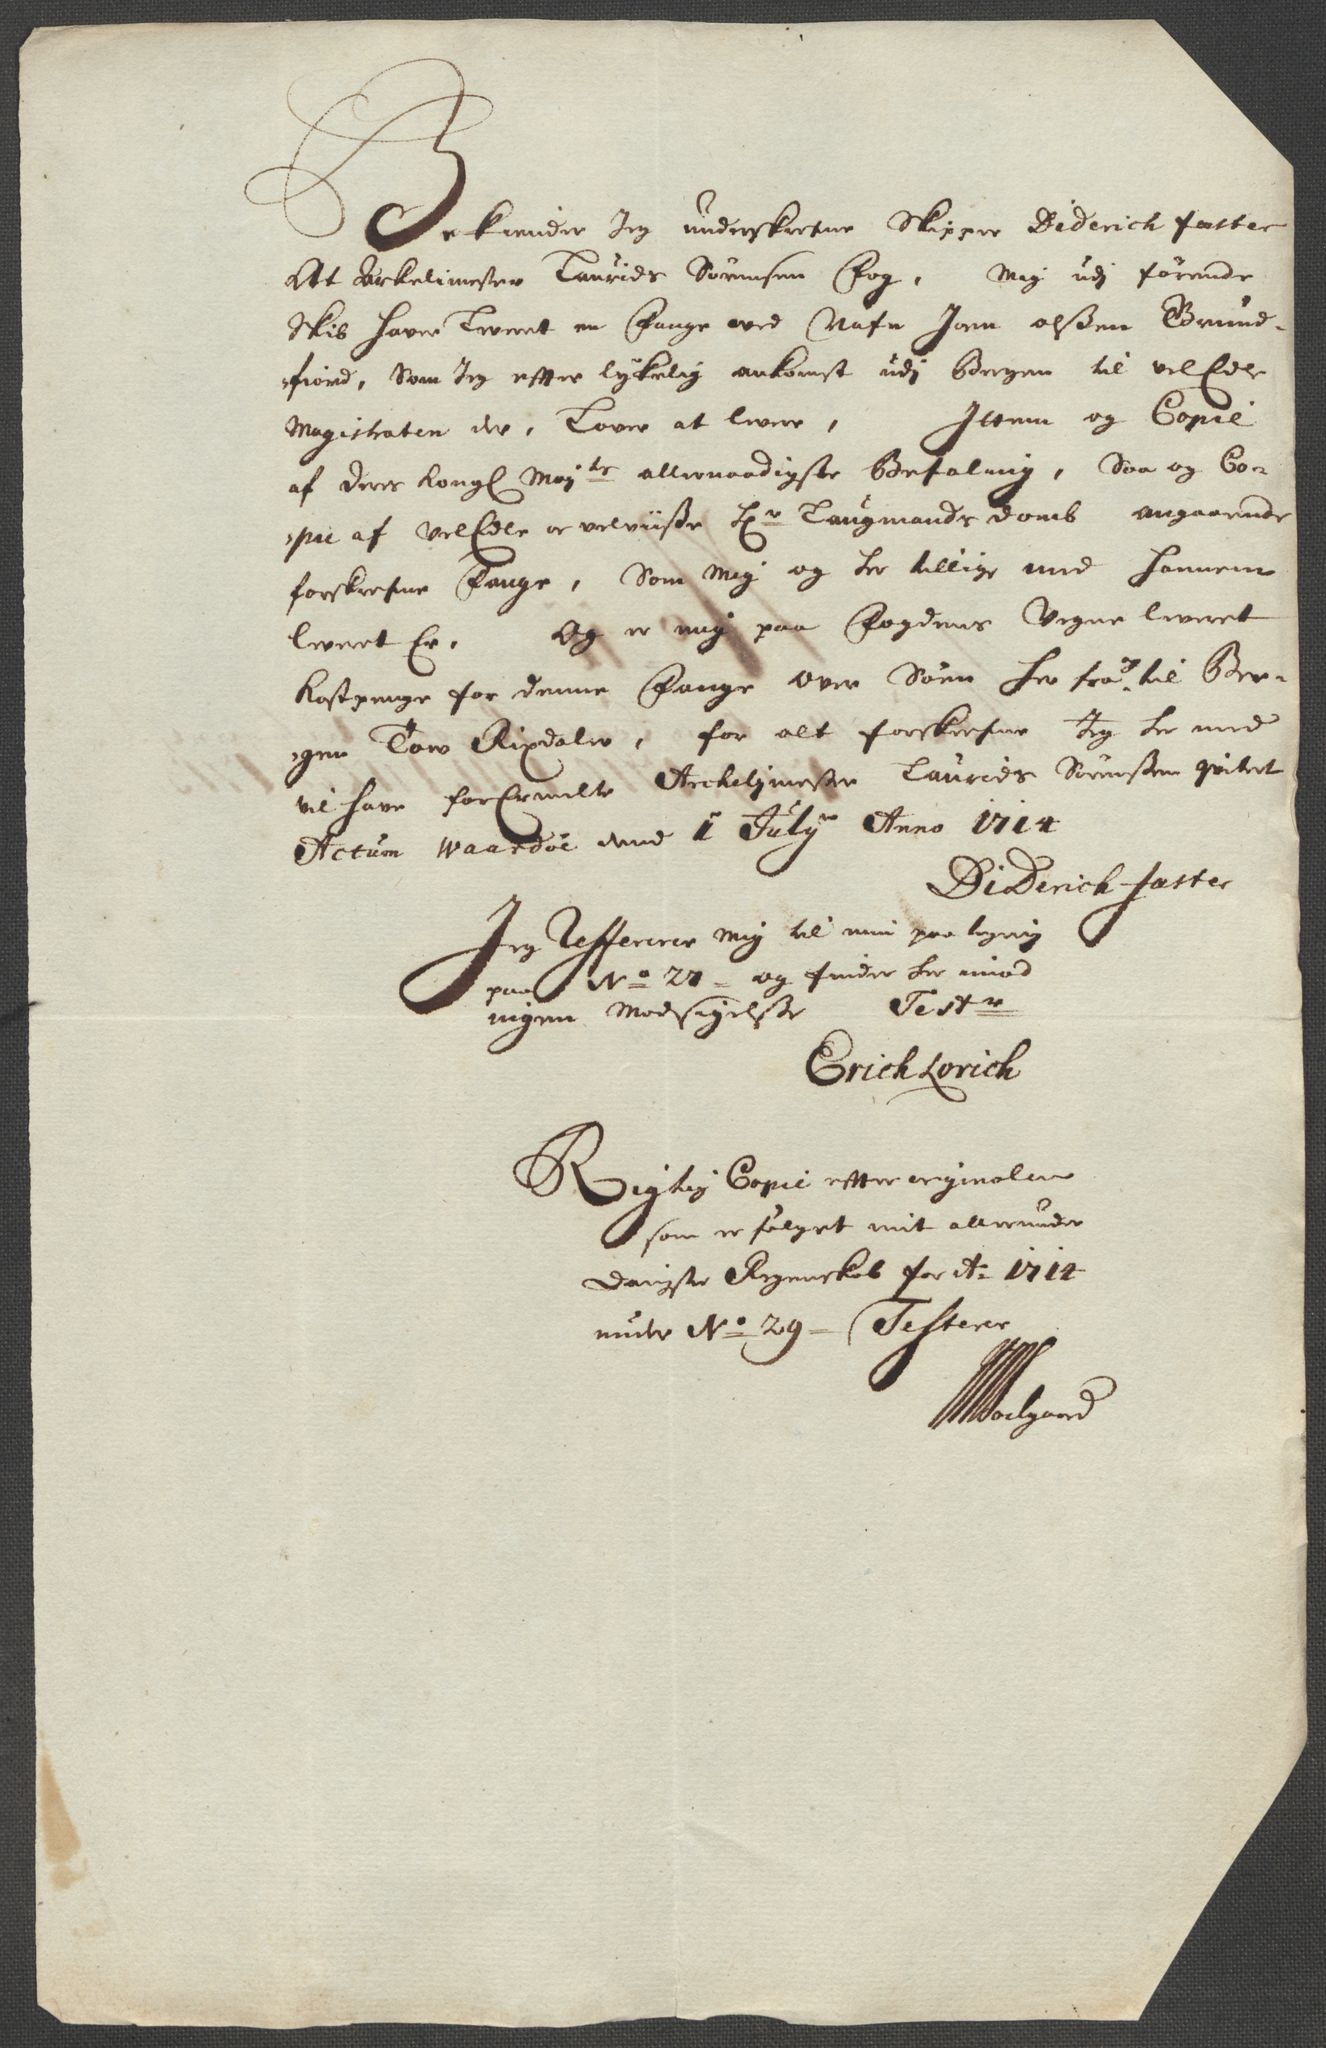 Bekiender Jeg underskrefne Skipper Diderich faster
Att Arkelimester Laurids Sørensen Fog, Mig udj førende
Skib hafver Lweret en Fange ved Nafn Joen olssen Grund-
fiord, Som Jeg effter lykelig ankomst udj Bergen til velEdle
Magistraten der, Lover at lwere, Jttem og Copie
af deres Kongl Mayts allernaadigste Befaling, Saa og Co-
pie af VelEdle oc velviisse Hr Laugmands domb angaaende
forskrefne Fange, Som Mig og her tillige med hannem
lweret Er. Og er mig paa Fogdens Vegne lweret
Kostpenge for denne Fange over Søen her fra, til Ber-
gen Tow Rixdaler, for alt forskrefne Jeg her med
vil have forErmelte Archelymester Laurids Sørenssen qvitert
Actum Waardøe dend 1 July Anno 1714
Diderich faster
Jeg Refererer Mig til min paategning
paa No 27 og finder her imod
ingen Modsigelsse Testr
Erich Lorich
Rigtig Copie effter originalen
som er følget mit allerunder
danigste Regenskab for Ao 1714
under No 29 Testerer